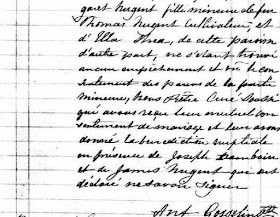 garet Nugent fille mineure de feu
Thomas Nugent Cultivateur, et
d'Ella de cette paroisse
d'autre part, ne s'étant trouvé
aucun empêchement et vu le con
sentement des parents de la partie
mineure, Nous Prêtre Curé Soussigné
qui avons reçu leur mutuel con
sentement de mariage et leur avons
donné la bénédiction nuptiale
en présence de Joseph
et de James Nugent qui ont
déclaré ne savoir signer
Ant. Gosselin Ptre